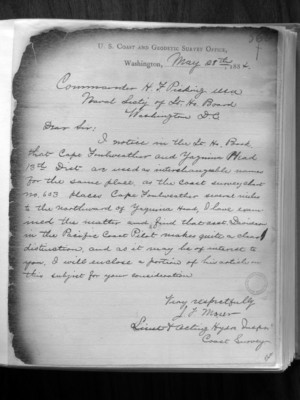 U. S. COAST AND GEODETIC SURVEY OFFICE,
Washington, May 28th, 1884.
Commander H. F. Picking USN
Naval Secty of Lt. Ho. Board
Washington D.C.
Dear Sir:
I notice in the Lt. Ho. Book
that Cape Foulweather and Yaquina Head
13th Dist. are used as interchangeable names
for the same place, as the Coast survey chart
no. 603 places Cape Foulweather several miles
to the northward of Yaquina Head, I have exa
mined the matter and find that asst Davidson
in the Pacific Coast Pilot makes quite a clear
distinction, and as it may be of interest to
you, I will enclose a portion of his notice on
this subject for your consideration
Very respectfully
J F Moser
Lieut & acting Hydro Inspr
Coast Survey